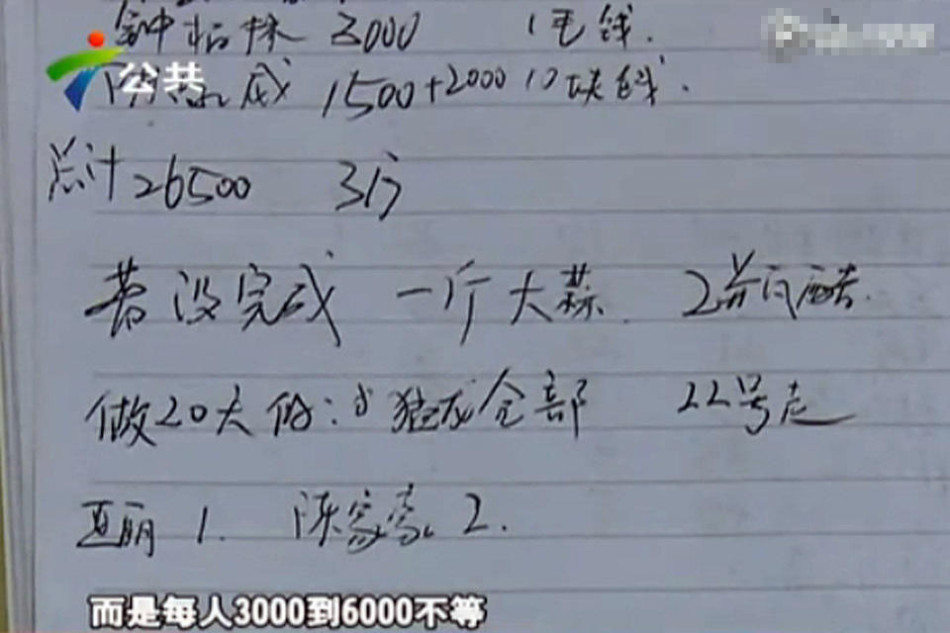 3000 1毛钱.
公共
成 1500+2000 10块钱.
总计26500 3斤
若没完成 一斤大蒜 2并瓦醋.
做20大的: 全部 22号走
亚丽 1. 陈家豪 2.
而是每人3000到6000不等